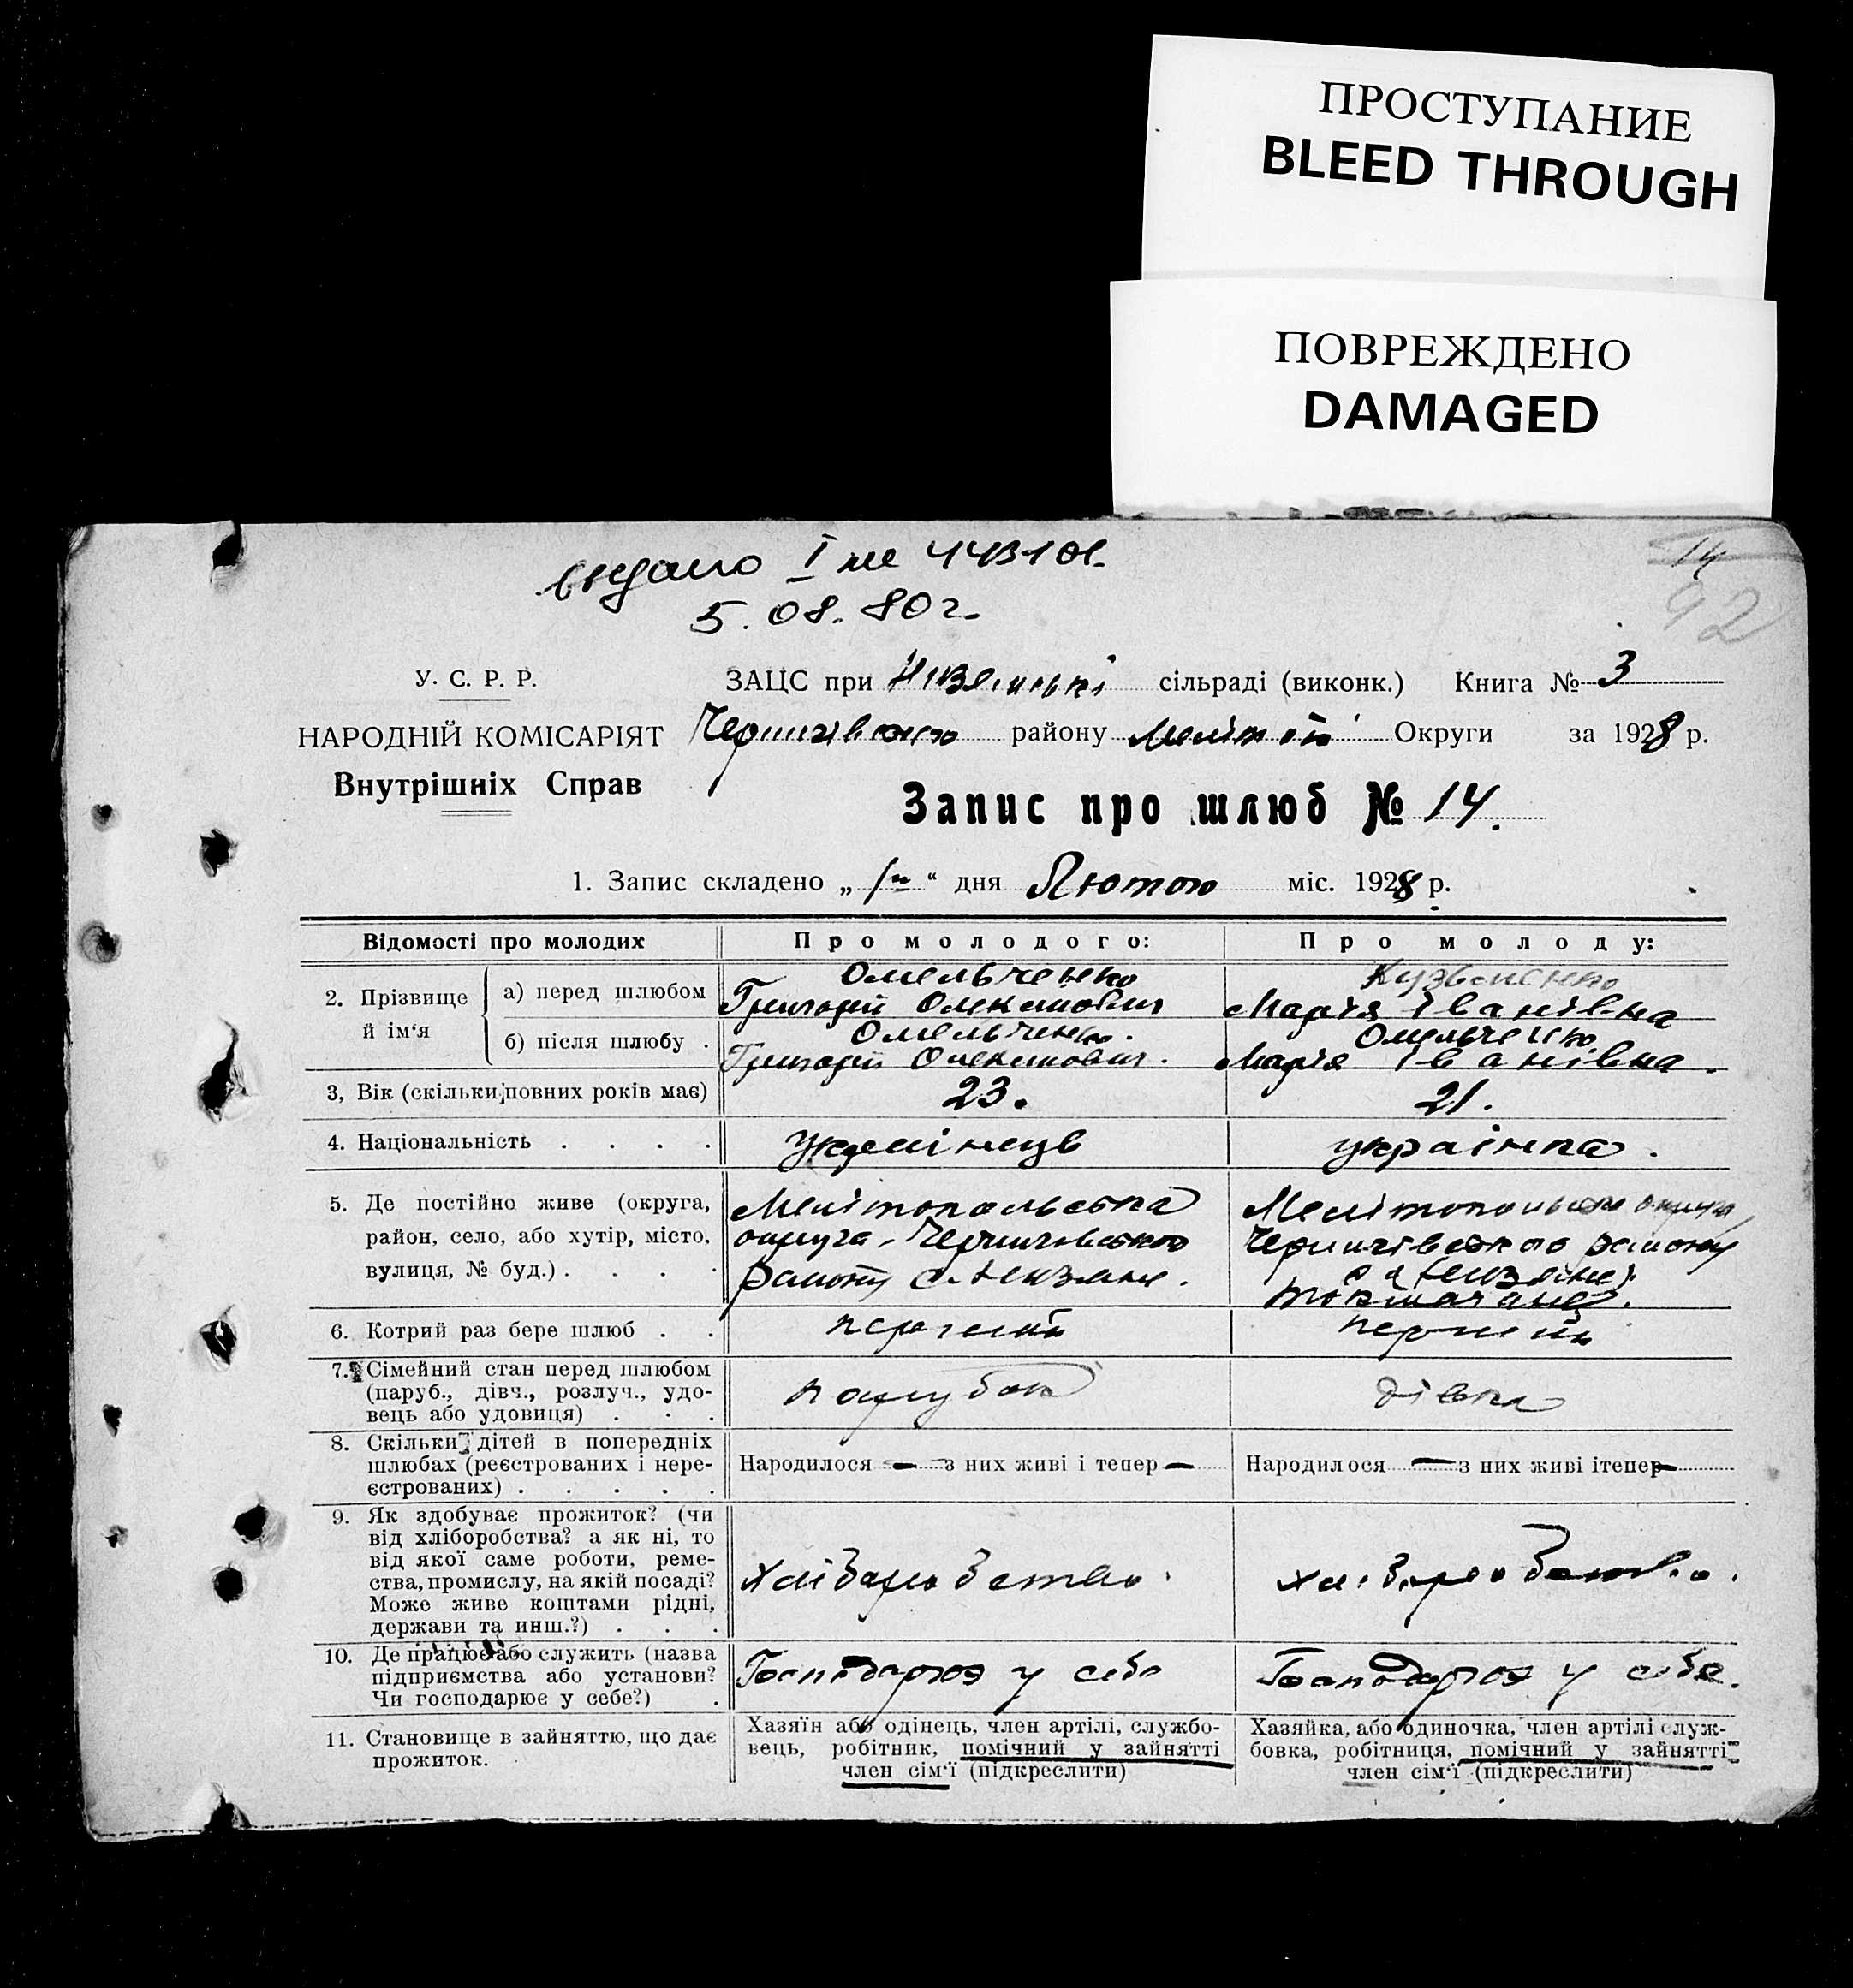 ПРОСТУПАНИЕ
BLEED THROUGH
ПОВРЕЖДЕНО
DAMAGED
видано I
5.08.80г.
14
92
У. С. Р. Р.
ЗАЦС при сільраді (виконк.) Книга № 3
НАРОДНІЙ КОМІСАРІЯТ
Чернигівского району Меліт ої Округи за 1928 р.
Внутрішніх Справ
Запис про шлюб № 14.
1. Запис складено „1го“ дня Лютого міс. 1928 р.
Відомості про молодих
Про молодого:
Про молоду:
2. Прізвище й ім'я
а) перед шлюбом
Омельченко
Григорій Олексиович
Кузьменко
Марія Іванівна
б) після шлюбу .
Омельченко.
Григорій Олексиович.
Омельченко
Марія Іванівна.
3, Вік (скільки повних років має)
23.
21.
4. Національність . . . .
Українець
українка.
5. Де постійно живе (округа,
район, село, або хутір, місто,
вулиця, № буд.) . . . .
Мелітопольська
округа, Чернигівського
району с.
Мелітопольська округа,
Чернигівского району
6. Котрий раз бере шлюб . .
первий
первий
7. Сімейний стан перед шлюбом
(паруб., дівч., розлуч., удо-
вець або удовиця) . . .
парубок
дівка
8. Скільки дітей в попередніх
шлюбах (реєстрованих і нере-
єстрованих) . . . . .
Народилося — з них живі і тепер —
Народилося — з них живі ітепер —
9. Як здобуває прожиток? (чи
від хліборобства? а як ні, то
від якої саме роботи, реме-
ства, промислу, на якій посаді?
Може живе коштами рідні,
держави та инш.?) . . .
Хліборобство.
хліборобство.
10. Де працює або служить (назва
підприємства або установи?
Чи господарює у себе?) .
Господарює у себе
Господарює у себе.
11. Становище в зайняттю, що дає
прожиток.
Хазяїн або одінець, член артілі, службо-
вець, робітник, помічний у зайнятті
член сім'ї (підкреслити)
Хазяйка, або одиночка, член артілі служ-
бовка, робітниця, помічний у зайнятті
член сім'ї (підкреслити)